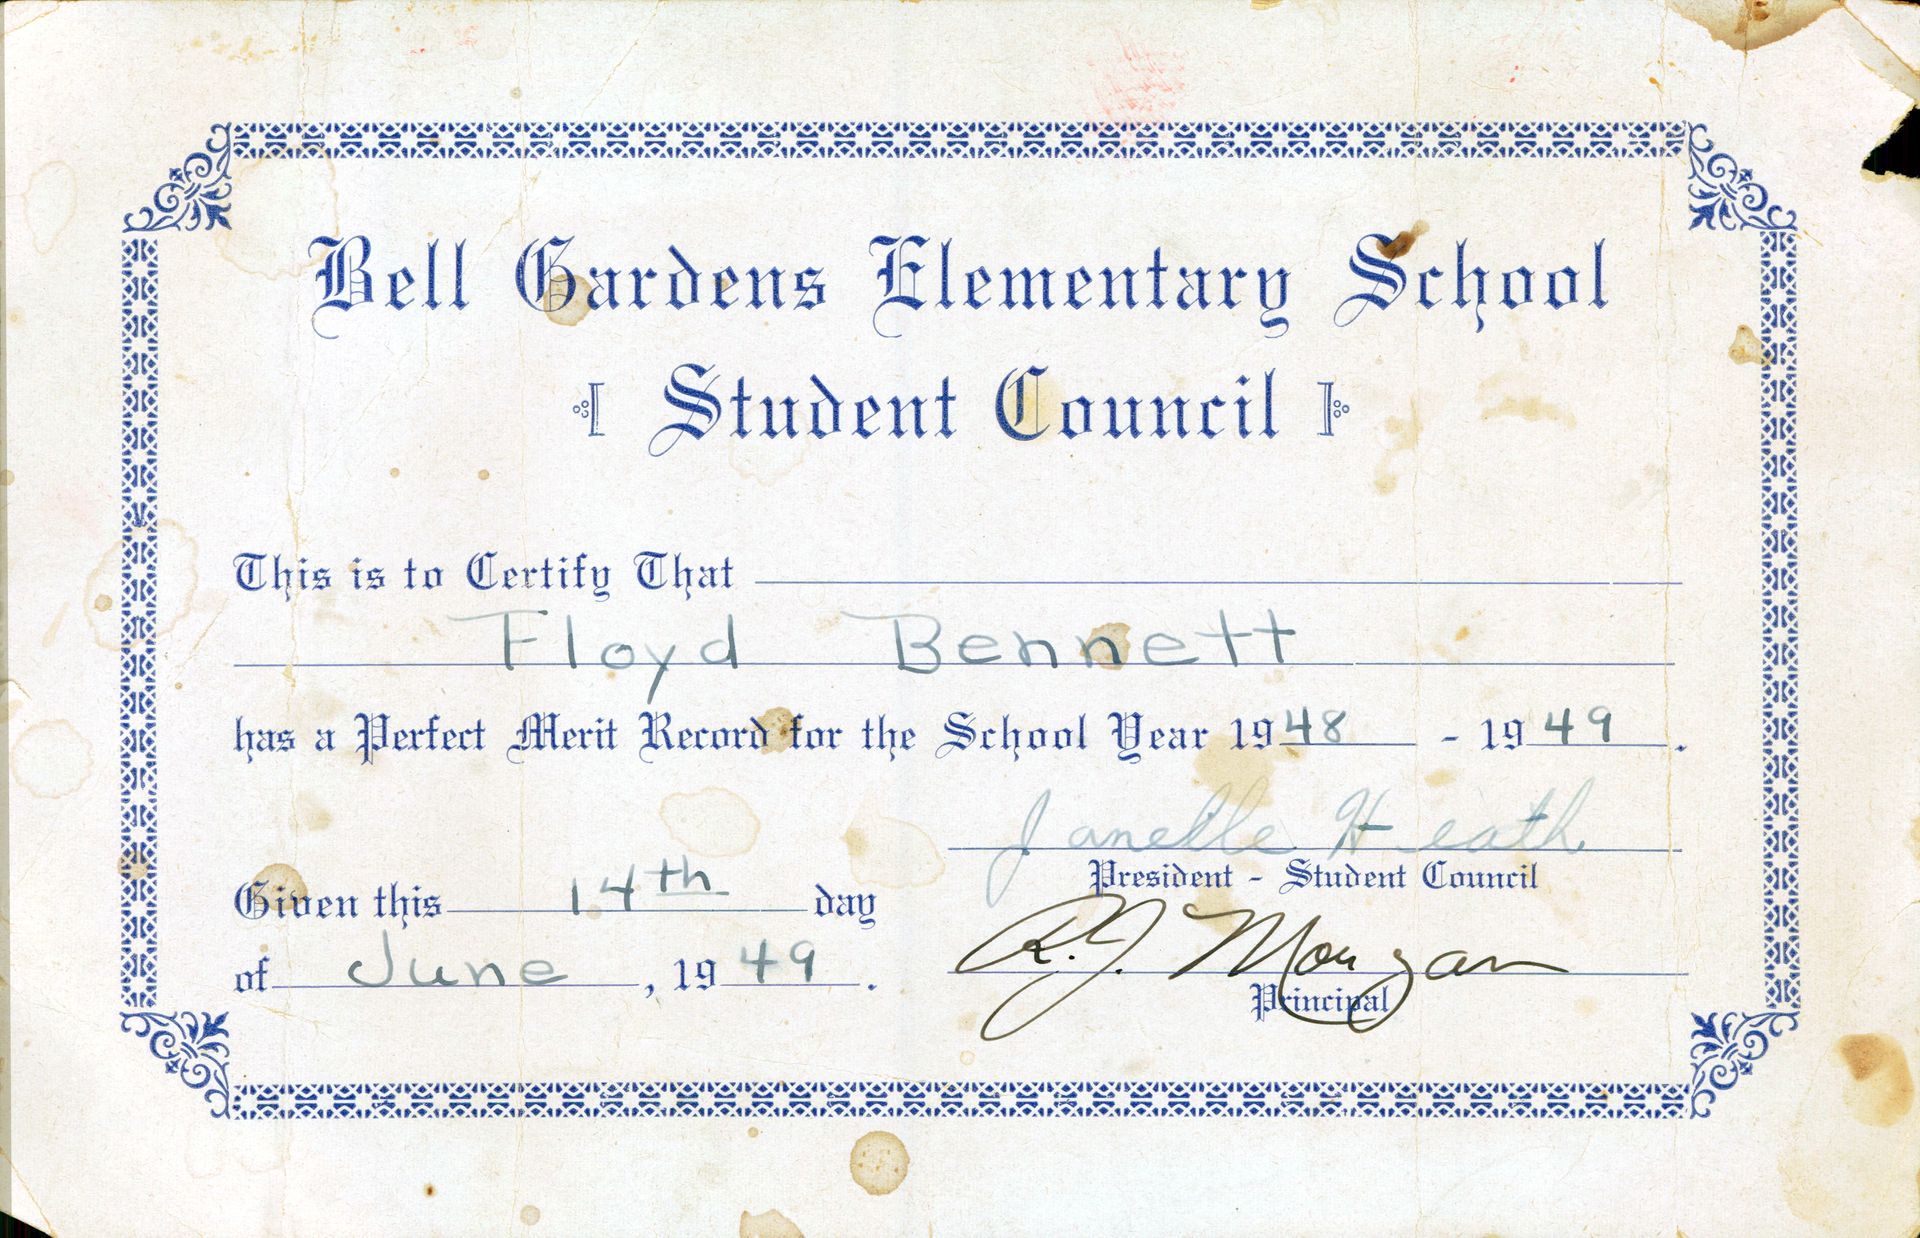 Bell Gardens Elementary School
Student Council
This is to Certify That
Floyd Bennett
has a Perfect Merit Record for the School Year 1948 - 1949.
Janelle Heath
President - Student Council
Given this 14th day
of June, 1949.
R.J. Morgan
Principal